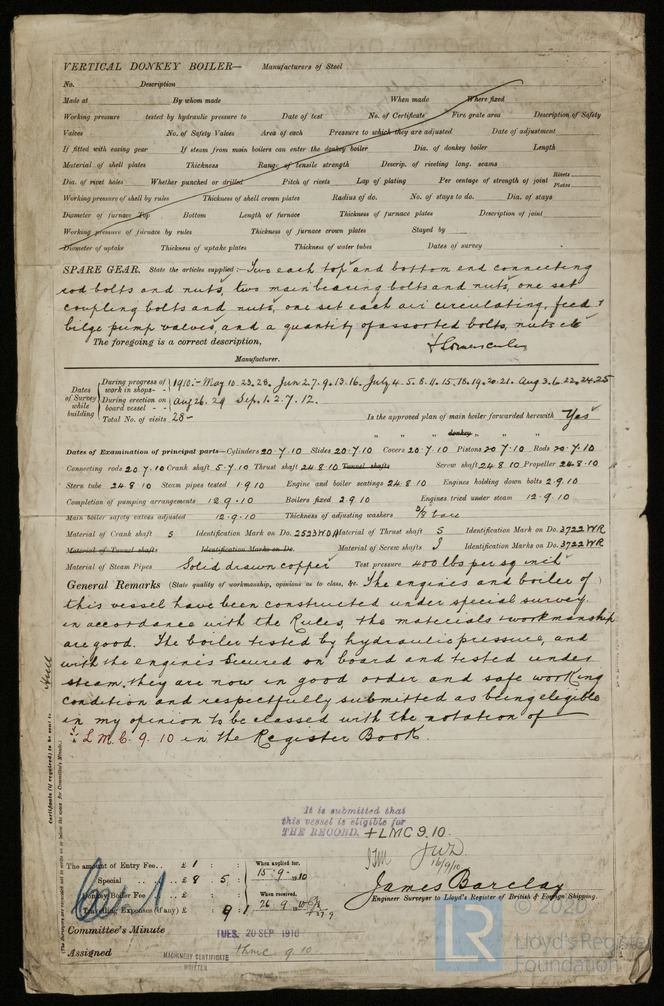 VERTICAL DONKEY BOILER— Manufacturers of Steel
No. Description
Made at By whom made When made Where fixed
Working pressure tested by hydraulic pressure to Date of test No. of Certificate Fire grate area Description of Safety
Valves No. of Safety Valves Area of each Pressure to which they are adjusted Date of adjustment
If fitted with easing gear If steam from main boilers can enter the donkey boiler Dia. of donkey boiler Length
Material of shell plates Thickness Range of tensile strength Descrip. of riveting long. seams
Dia. of rivet holes Whether punched or drilled Pitch of rivets Lap of plating Per centage of strength of joint Rivets Plates
Working pressure of shell by rules Thickness of shell crown plates Radius of do. No. of stays to do. Dia. of stays
Diameter of furnace Top Bottom Length of furnace Thickness of furnace plates Description of joint
Working pressure of furnace by rules Thickness of furnace crown plates Stayed by
Diameter of uptake Thickness of uptake plates Thickness of water tubes Dates of survey
SPARE GEAR. State the articles supplied:— Two each top and bottom end connecting
rod bolts and nuts, two main bearing bolts and nuts, one set
coupling bolts and nuts, one set each air circulating, feed &
bilge pump valves, and a quantity of assorted bolts, nuts etc
The foregoing is a correct description,
Manufacturer.
Dates of Survey while building
During progress of work in shops - - 1910:- May 10. 23. 28. Jun 2. 7. 9. 13. 16. July 4. 5. 8. 11. 15. 18. 19. 20. 21. Aug 3. 6. 22. 24. 25
During erection on board vessel - - Aug 26. 29 Sep. 1. 2. 7. 12.
Total No. of visits 28— Is the approved plan of main boiler forwarded herewith Yes
" " " donkey " " "
Dates of Examination of principal parts—Cylinders 20.7.10 Slides 20.7.10 Covers 20.7.10 Pistons 20.7.10 Rods 20.7.10
Connecting rods 20.7.10 Crank shaft 5.7.10 Thrust shaft 24.8.10 Tunnel shafts Screw shaft 24.8.10 Propeller 24.8.10
Stern tube 24.8.10 Steam pipes tested 1.9.10 Engine and boiler seatings 24.8.10 Engines holding down bolts 2.9.10
Completion of pumping arrangements 12.9.10 Boilers fixed 2.9.10 Engines tried under steam 12.9.10
Main boiler safety valves adjusted 12.9.10 Thickness of adjusting washers 3/8 bare
Material of Crank shaft S Identification Mark on Do. 2523WDA Material of Thrust shaft S Identification Mark on Do. 3722WR
Material of Tunnel shafts Identification Marks on Do. Material of Screw shafts I Identification Marks on Do. 3722WR
Material of Steam Pipes Solid drawn copper Test pressure 400 lbs per sq inch
General Remarks (State quality of workmanship, opinions as to class, &c. The engines and boiler of
this vessel have been constructed under special survey
in accordance with the Rules, the materials & workmanship
are good. The boiler tested by hydraulic pressure, and
with the engines secured on board and tested under
steam. they are now in good order and safe working
condition and respectfully submitted as being eligible
in my opinion to be classed with the notation of
L.M.C. 9. 10 in the Register Book.
Certificate (if required) to be sent to Hull
It is submitted that
this vessel is eligible for
THE RECORD. + LMC 9.10.
JWD
16/9/10
The amount of Entry Fee.. £ 1 : :
Special .. .. .. £ 8 : 5 :
Donkey Boiler Fee .. £ : :
Travelling Expenses (if any) £ : :
9 1
When applied for,
15.9.10
When received,
26.9.10
James Barclay
Engineer Surveyor to Lloyd's Register of British & Foreign Shipping.
Committee's Minute TUES. 20 SEP 1910
Assigned + LMC 9.10
MACHINERY CERTIFICATE
WRITTEN
LR
© 2020
Lloyd's Register
Foundation